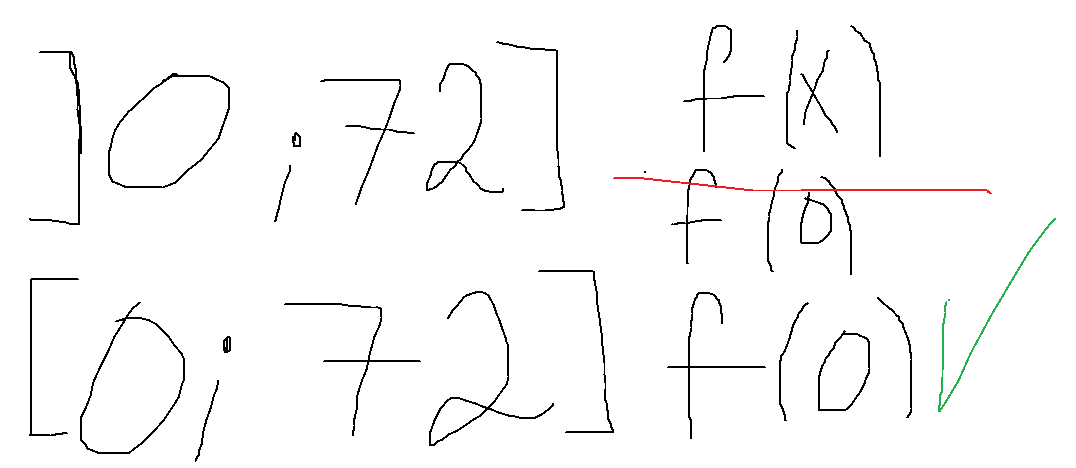 ]0;72] f(x)
f(0)
[0;72] f(0)